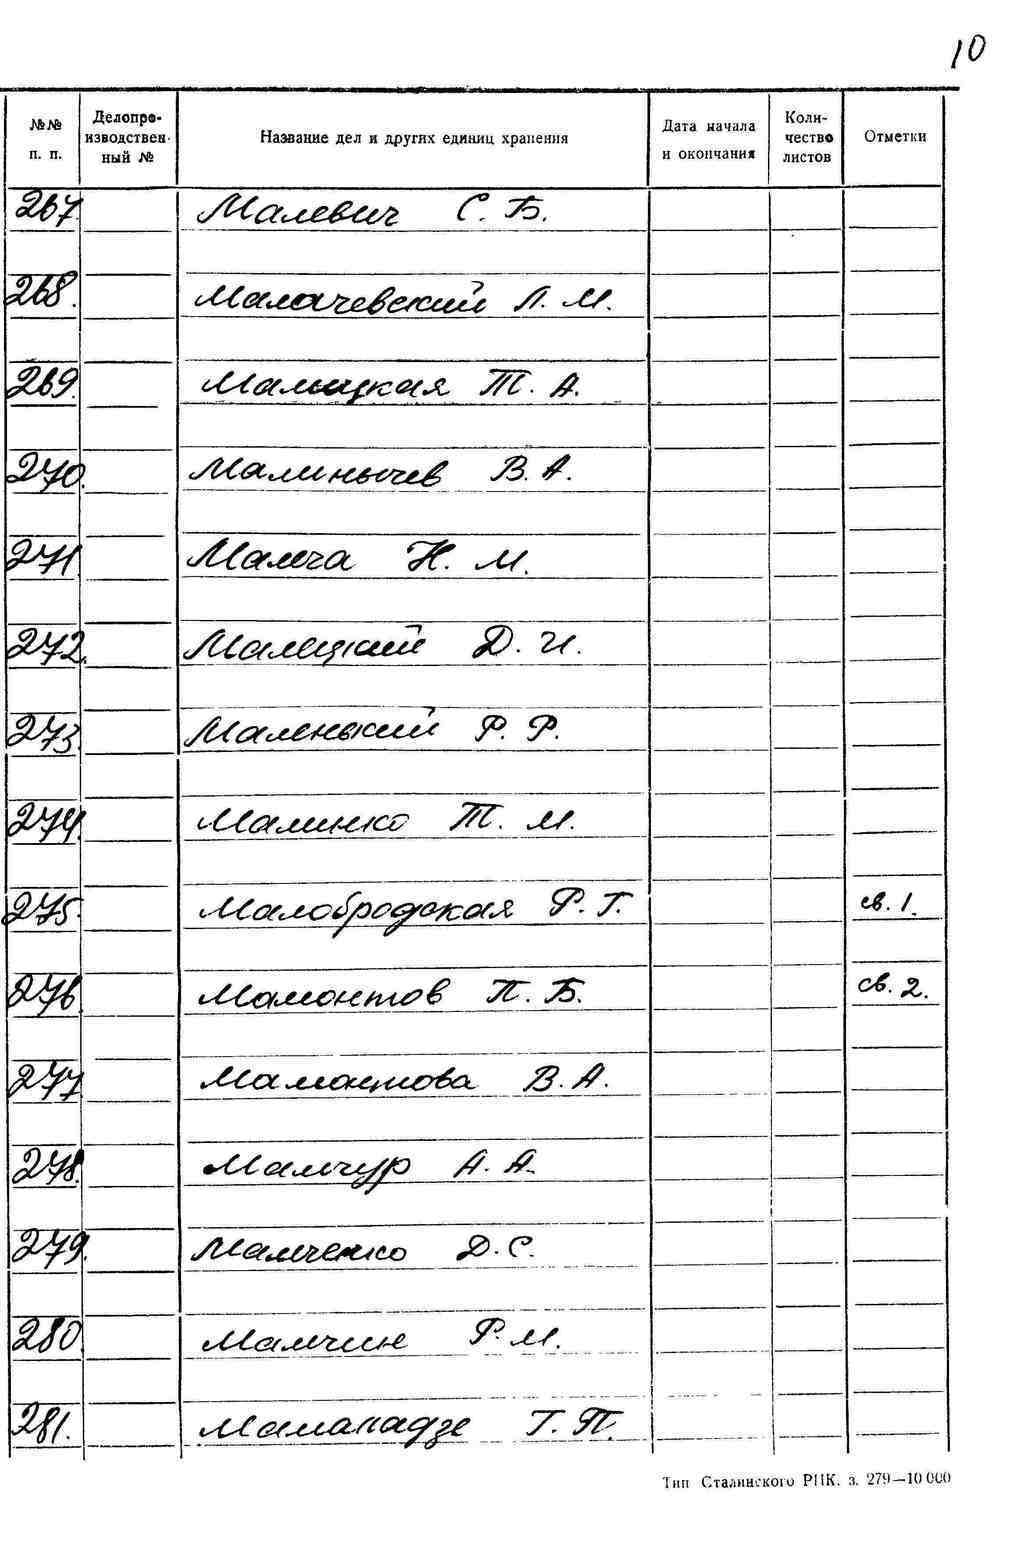 10
№№ п. п. Делопроизводственный № Название дел и других единиц хранения Дата начала и окончания Количество листов Отметки
267. Малевич С. Б.
268. Малачевский Л. М.
269. Малицкая Т. А.
270. Малинычев В. А.
271. Малеча Н. М.
272. Малецкий Д. И.
273. Маленький Р. Р.
274. Малинко Т. М.
275. Малобродская Р. Г. св. 1.
276. Мамонтов П. Б. св. 2.
277. Мамонтова В. А.
278. Мамчур А. А.
279. Мамченко Д. С.
280. Мамчин Р. М.
281. Маманадзе Г. П.
Тип Сталинского РПК. з. 279—10 000